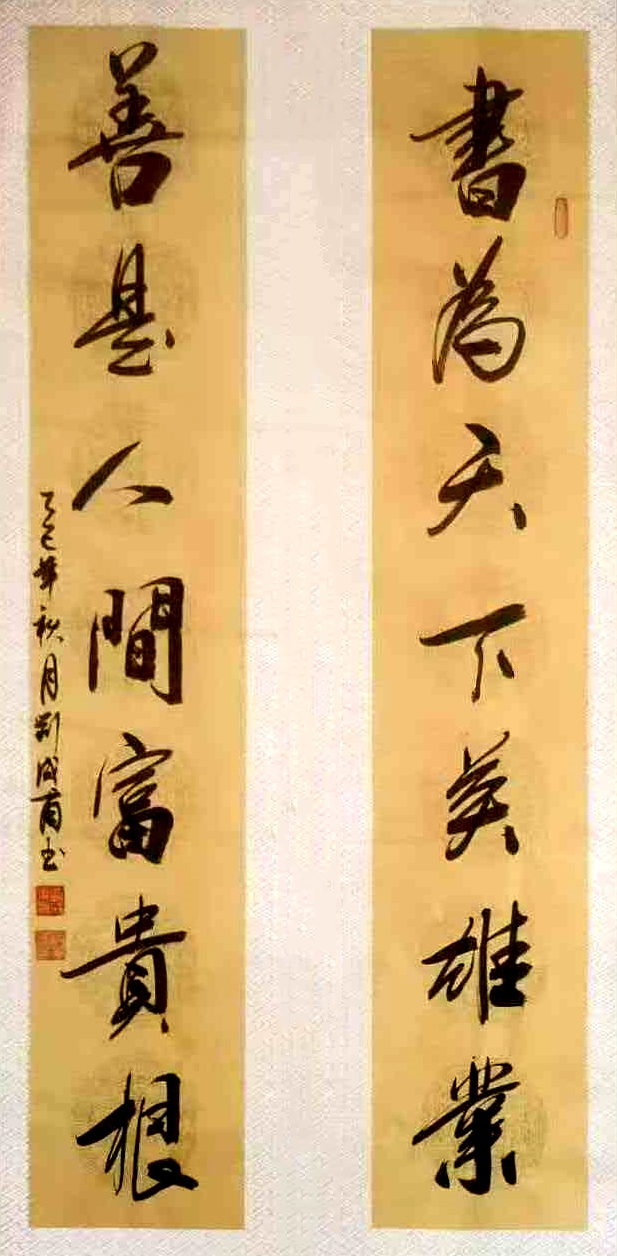 書為天下英雄業
善是人間富貴根
乙巳年秋月劉成育书